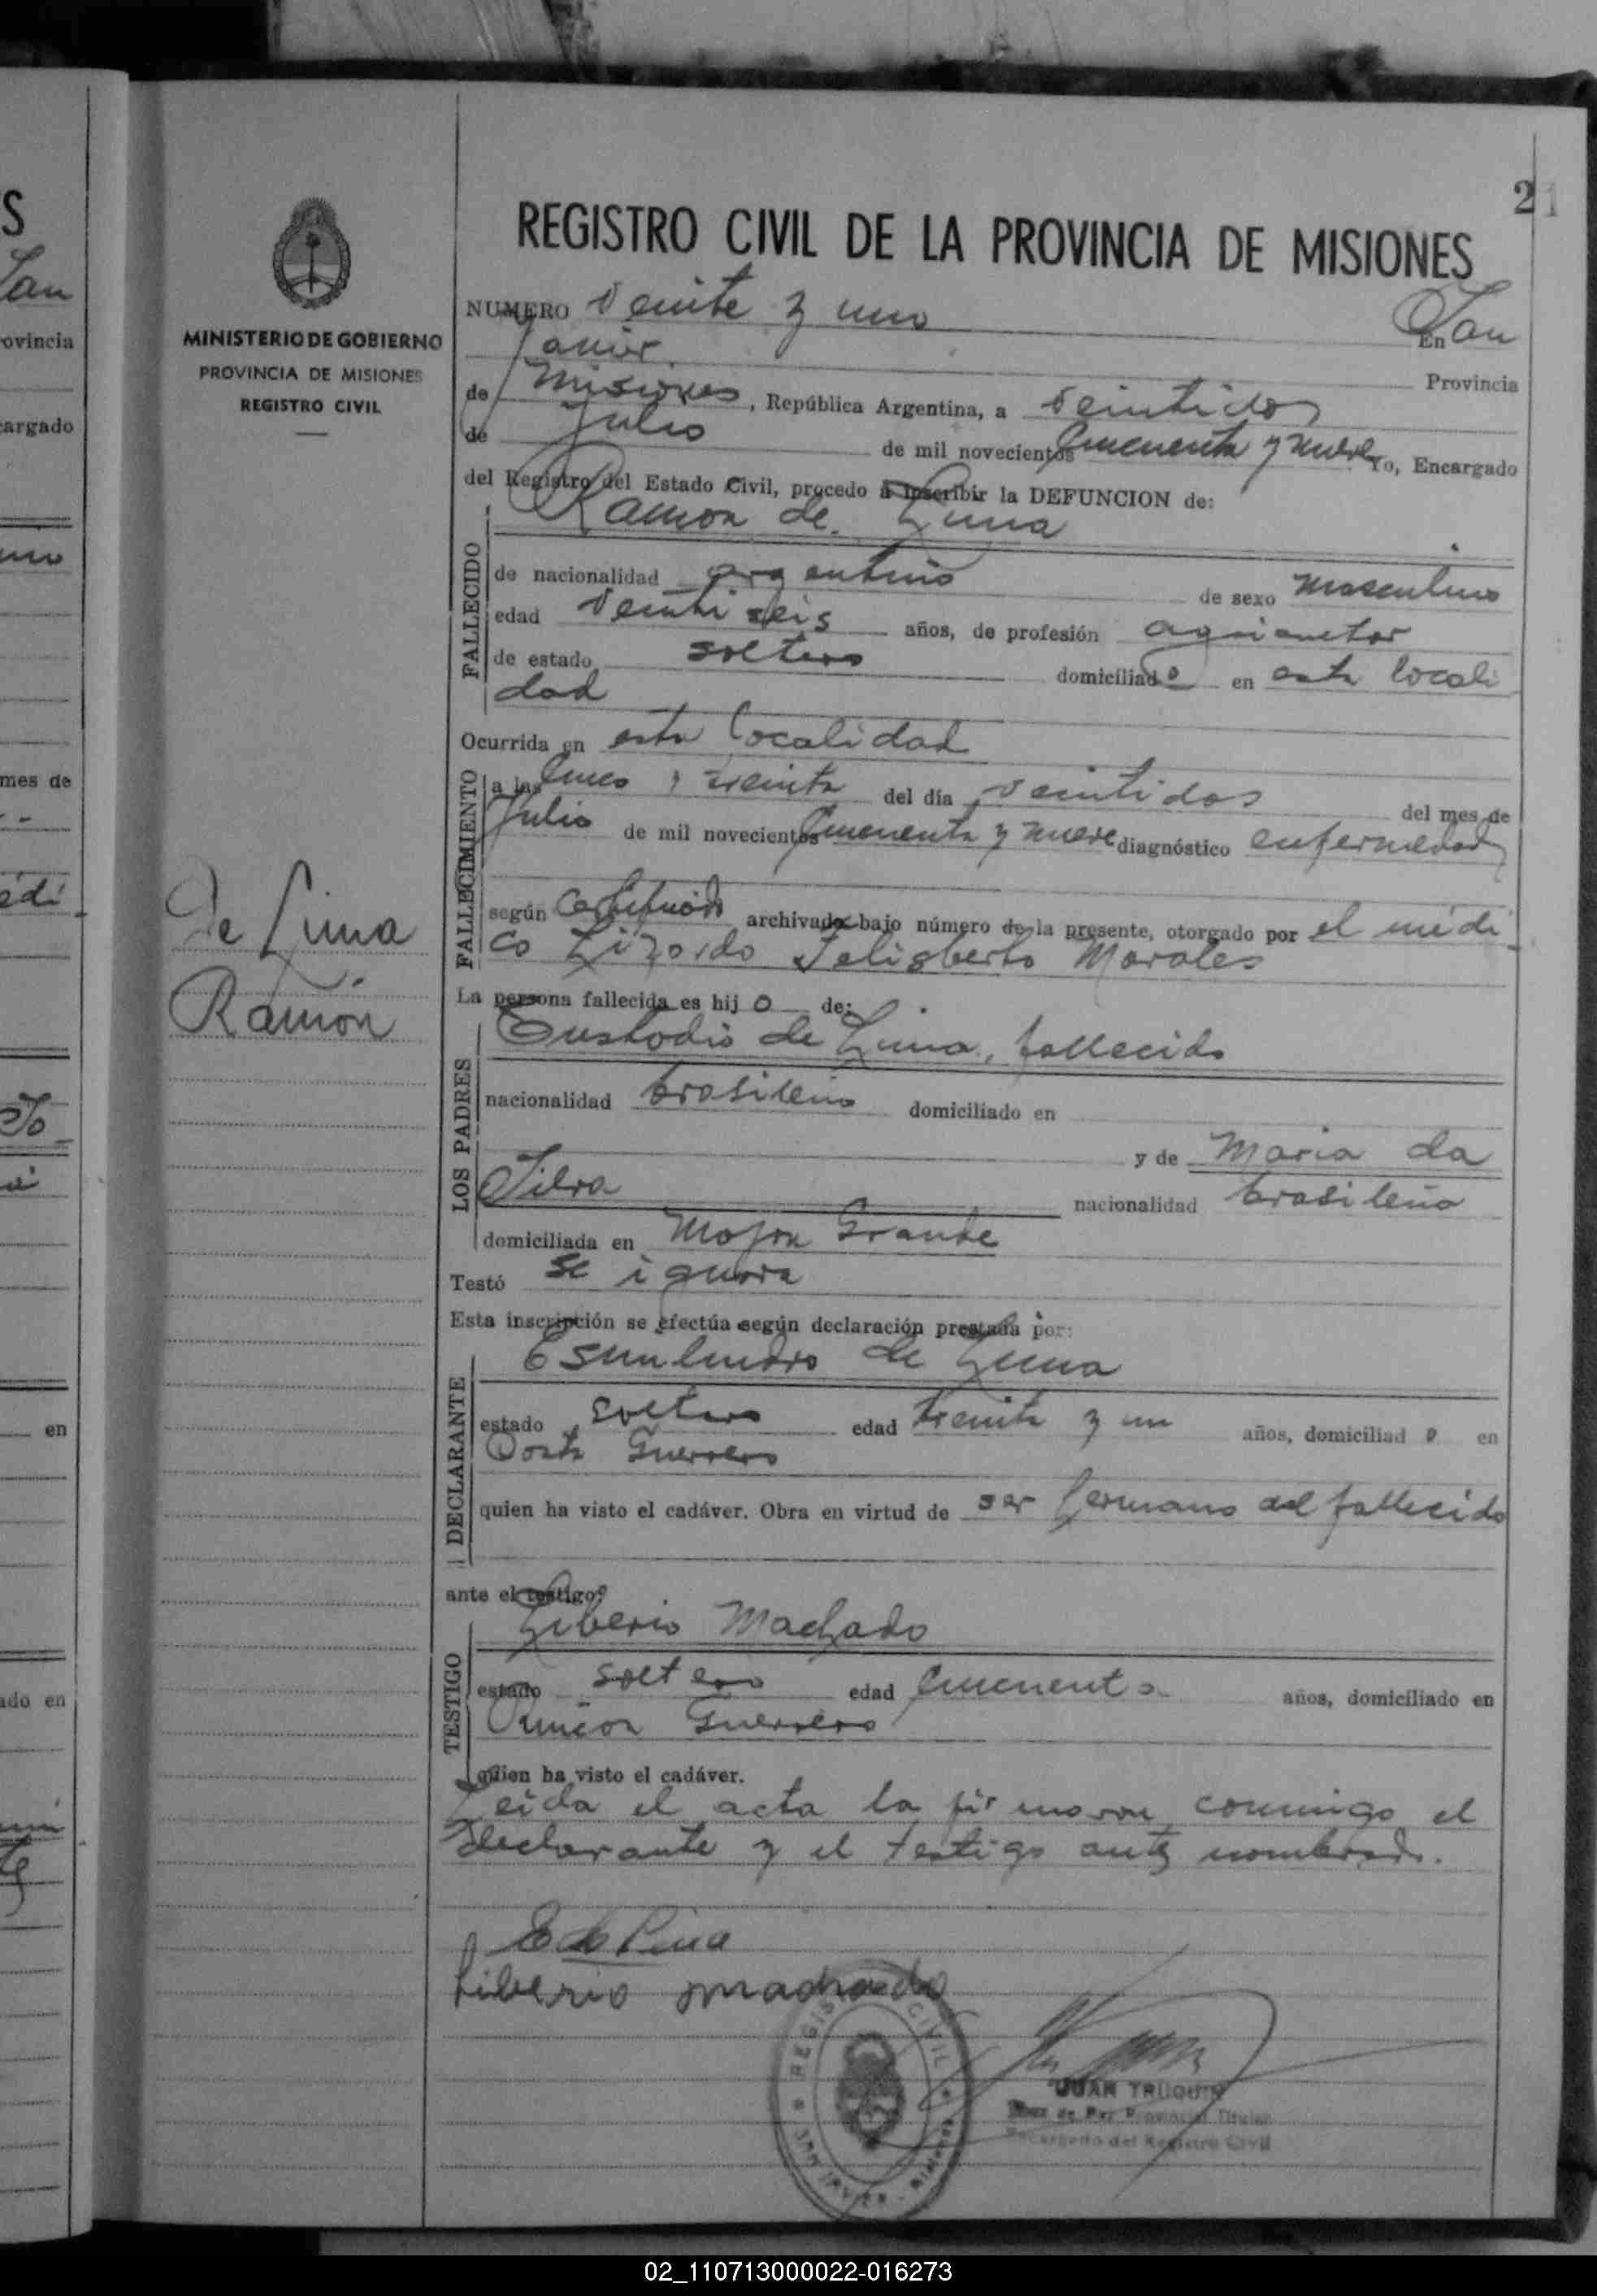 21
REGISTRO CIVIL DE LA PROVINCIA DE MISIONES
MINISTERIO DE GOBIERNO
PROVINCIA DE MISIONES
REGISTRO CIVIL
NUMERO Veinte y uno En San
Javier Provincia
de Misiones, República Argentina, a veintidos
de Julio de mil novecientos cincuenta y nueve Yo, Encargado
del Registro del Estado Civil, procedo a inscribir la DEFUNCION de:
Ramon de Lima
FALLECIDO
de nacionalidad argentino de sexo masculino
edad veinti seis años, de profesión agricultor
de estado soltero domiciliado en esta locali
dad
Ocurrida en esta localidad
FALLECIMIENTO
a las cinco y treinta del día veintidos del mes de
Julio de mil novecientos cincuenta y nueve diagnóstico enfermedad
según certificado archivado bajo número de la presente, otorgado por el médi
co Lizardo Feligberto Morales
La persona fallecida es hijo de:
LOS PADRES
Custodio de Lima, fallecido
nacionalidad brasileño domiciliado en
y de Maria da
Silva nacionalidad brasileña
domiciliada en Mojon Grande
Testó se ignora
Esta inscripción se efectúa según declaración prestada por:
DECLARANTE
de Lima
estado soltero edad treinta y un años, domiciliado en
Guerrero
quien ha visto el cadáver. Obra en virtud de ser hermano del fallecido
ante el testigo:
TESTIGO
Liberio Machado
estado soltero edad cincuenta años, domiciliado en
Rincon Guerrero
quien ha visto el cadáver.
Leida el acta la firmaron conmigo el
declarante y el testigo antes nombrado.
De Lima
Ramón
E de Lima
Liberio machado
REGISTRO CIVIL
SAN JAVIER MISIONES
JUAN TRUQUIN
Juez de Paz Provincial Titular
Encargado del Registro Civil
02_110713000022-016273